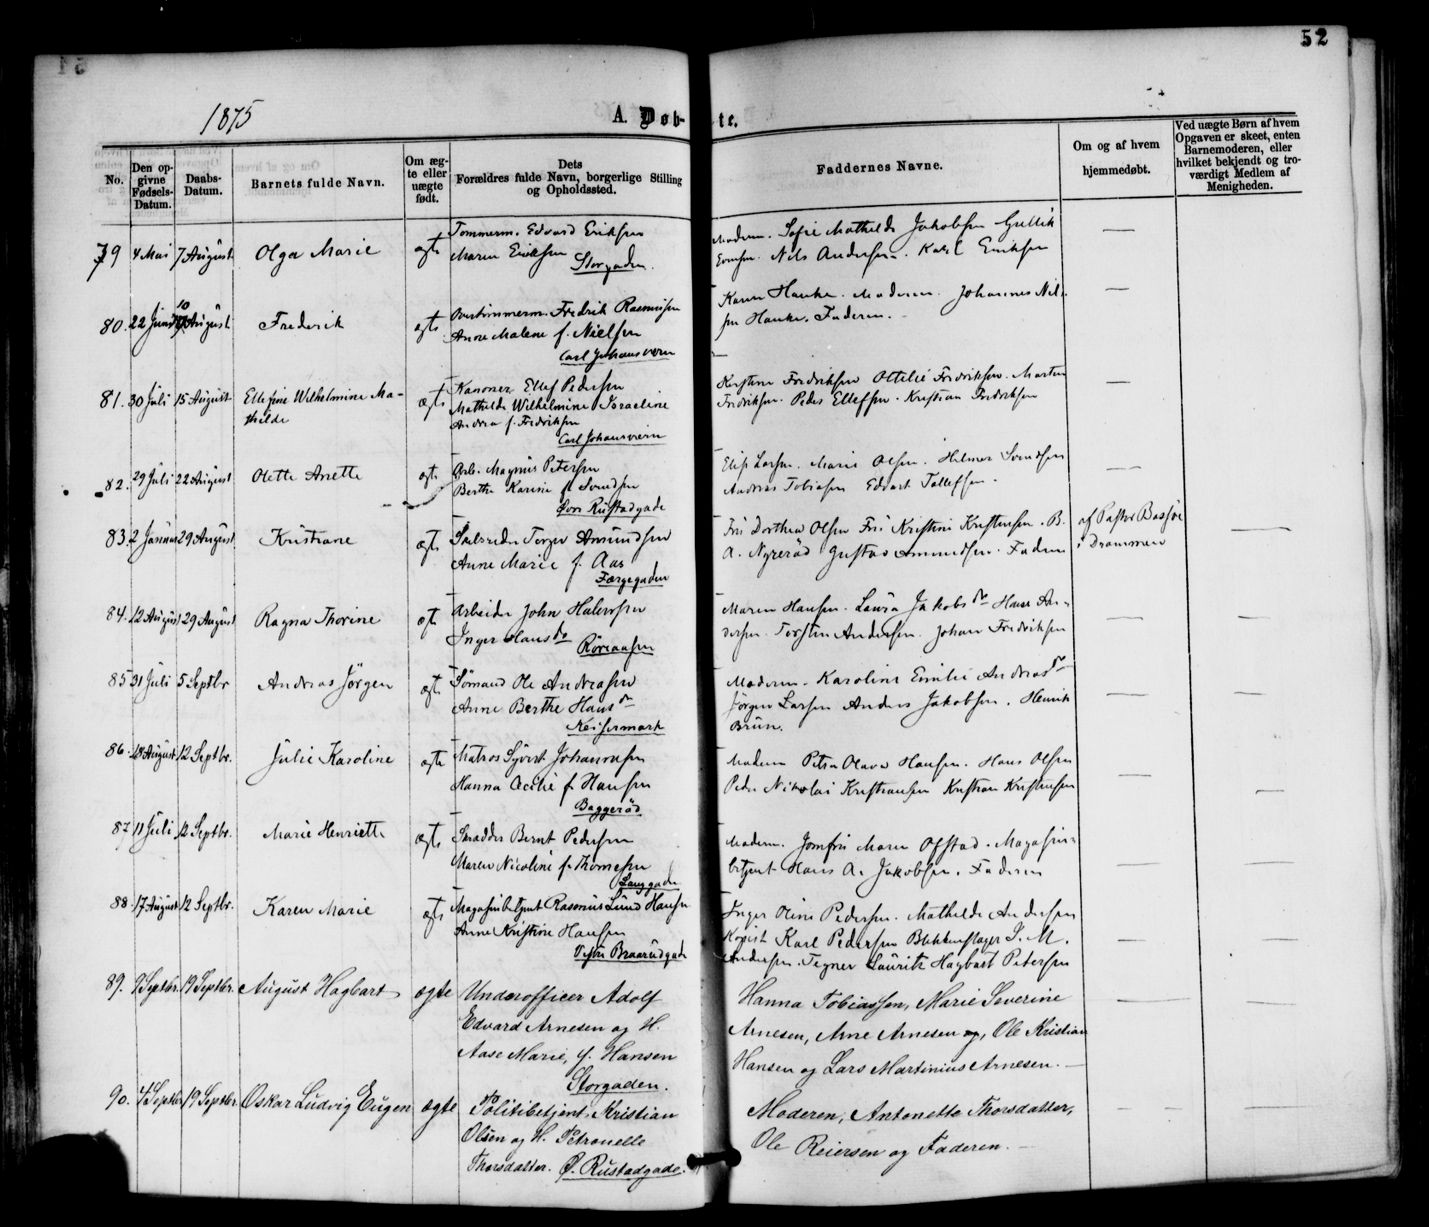 52
1875
A. Døb-
te.
No.
Den op-
givne
Fødsels-
Datum.
Daabs-
Datum.
Barnets fulde Navn.
Om æg-
te eller
uægte
født.
Dets
Forældres fulde Navn, borgerlige Stilling
og Opholdssted.
Faddernes Navne.
Om og af hvem
hjemmedøbt.
Ved uægte Børn af hvem
Opgaven er skeet, enten
Barnemoderen, eller
hvilket bekjendt og tro-
værdigt Medlem af
Menigheden.
79 4 Mai 7 August Olga Marie ægte
Tommerm. Edvard Eriksen
Maren Eriksen
Storgaden.
Moderen. Sofie Mathilde Jakobsen Gullik
Evensen. Nils Andersen. Karl Eriksen
80. 22 Juni 10 August Frederik ægte
Fredrik Rasmussen
Anne Malene f. Nielsen
Carl Johansværn
Karen Hauke. Moderen. Johannes Nil-
sen Hauke. Faderen.
81. 30 Juli 15 August Ellefine Wilhelmine Ma-
thilde
ægte
Kanoner Ellef Pedersen
Mathilde Wilhelmine Israeline
Andrea f. Fredriksen
Carl Johansværn
Kirstine Fredriksen Ottilie Fredriksen. Morten
Fredriksen. Peder Ellefsen. Kristian Fredriksen
82. 29 Juli 22 August Olette Anette ægte
Arb. Magnus Petersen
Berthe Karine f. Svendsen
Øvre Rustadgade
Elise Larsen. Marie Olsen. Hilmer Svendsen
Andreas Tobiasen Edvart Tollefsen.
83. 2 Januar 29 August Kristiane ægte
Torger Amundsen
Anne Marie f. Aas
Færgegaden
Fru Dorthea Olsen Fru Kristine Kristensen. B.
A. Nyrerød Gustav Amundsen. Faderen
af Pastor Bassøe
i Drammen
84. 12 August 29 August Ragna Thorine ægte
Arbeider John Halvorsen
Inger Hansdr
Rørcaasen
Maren Hansen. Laura Jakobsdr Hans An-
dersen. Torsten Andersen. Johan Fredriksen
85 31 Juli 5 Septbr Andreas Jørgen ægte
Sømand Ole Andreasen
Anne Berthe Hansdr
Keisermark
Moderen. Karoline Emilie Andreasdr
Jørgen Larsen Anders Jakobsen. Henrik
Brun.
86. August 12 Septbr. Julie Karoline ægte
Matros Syvert Johannesen
Hanna Cecilie f. Hansen
Baggerød
Moderen Petra Olava Hansen. Hans Olsen
Peder Nikolai Kristiansen Kristian Kristensen
87 11 Juli 12 Septbr. Marie Henriette ægte
Skrædder Bernt Pedersen
Maren Nicoline f. Thomesen
Langgade
Moderen. Jomfru Maren Ofstad. Magasin-
betjent Hans A. Jakobsen. Faderen
88. 17 August 12 Septbr. Karen Marie ægte
Magasinbetjent Rasmus Lund Hansen
Anne Kristine Hansen
Vestre Braarudgade
Inger Oline Pedersen. Mathilde Andersen
Kopist Karl Pedersen Blikkenslager S. M.
Andersen. Tegner Lauritz Hagbart Petersen
89. 9 Septbr. 19 Septbr. August Hagbart ægte
Underofficer Adolf
Edvard Arnesen og H.
Aase Marie, f. Hansen
Storgaden.
Hanna Tobiassen, Marie Severine
Arnesen, Arne Arnesen og, Ole Kristian
Hansen og Lars Martinius Arnesen.
90. 4 Septbr 19 Septbr. Oskar Ludvig Eugen ægte
Politibetjent Kristian
Olsen og H. Petronelle
Thorsdatter. Ø. Rustadgade.
Moderen, Antonette Thorsdatter,
Ole Reiersen og Faderen.